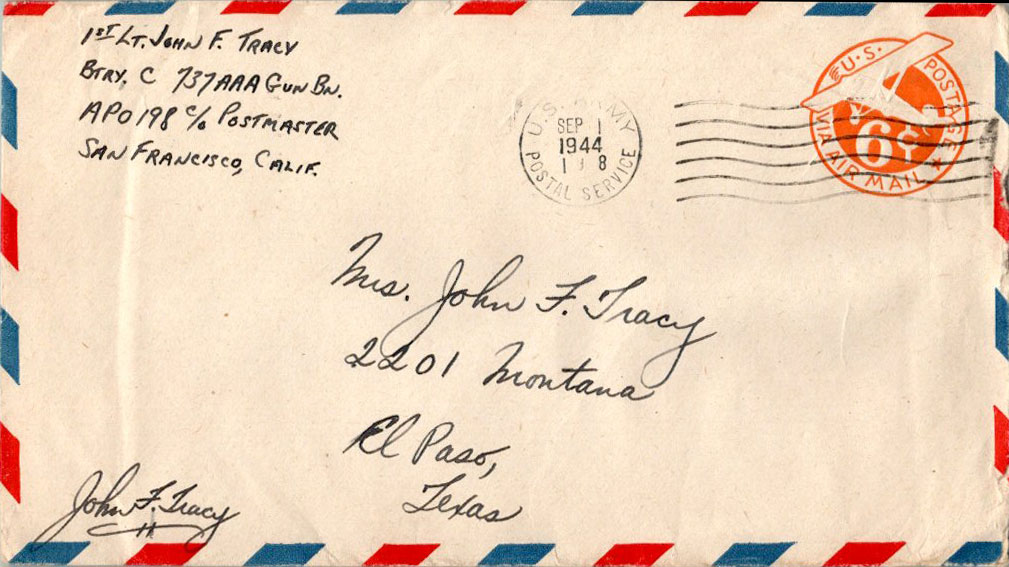 1ST LT. JOHN F. TRACY
BTRY. C 737 AAA GUN BN.
APO 198 c/o POSTMASTER
SAN FRANCISCO, CALIF.
U.S. ARMY
SEP 1
1944
POSTAL SERVICE
U.S. POSTAGE
6¢
VIA AIR MAIL
Mrs. John F. Tracy
2201 Montana
El Paso,
Texas
John F. Tracy